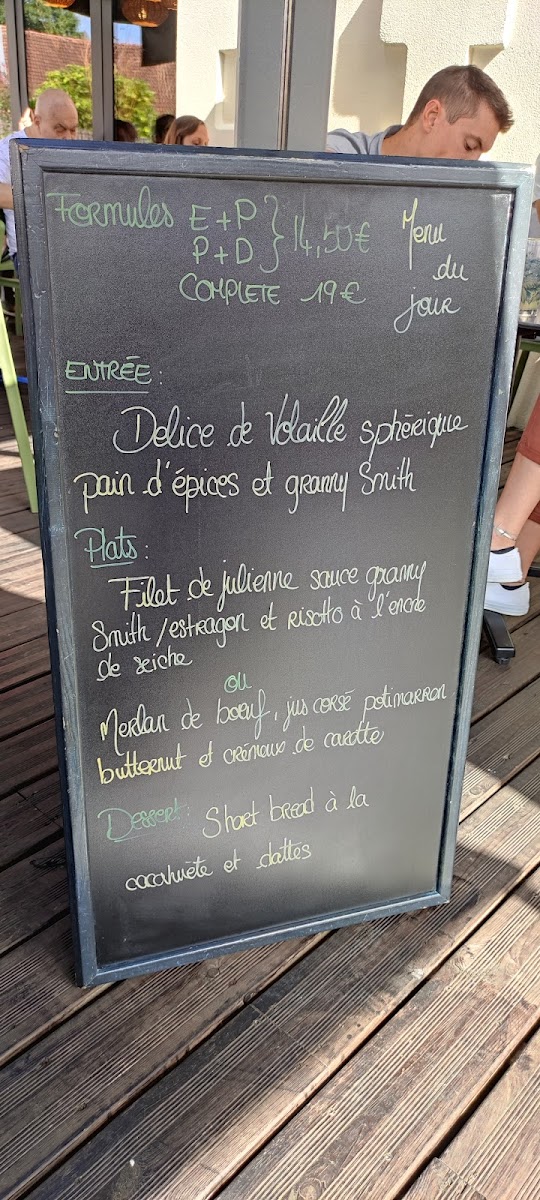 Formules E+P } 14,50€
P+D
COMPLETE 19€
Menu
du
jour
ENTRÉE :
Delice de Volaille sphèrique
pain d'épices et granny Smith
Plats :
Filet de julienne sauce granny
Smith/estragon et risotto à l'encre
de seiche
ou
Merlan de boeuf, jus corsé potimarron
butternut et crémeux de carotte
Dessert : Short bread à la
cacahuète et dattes